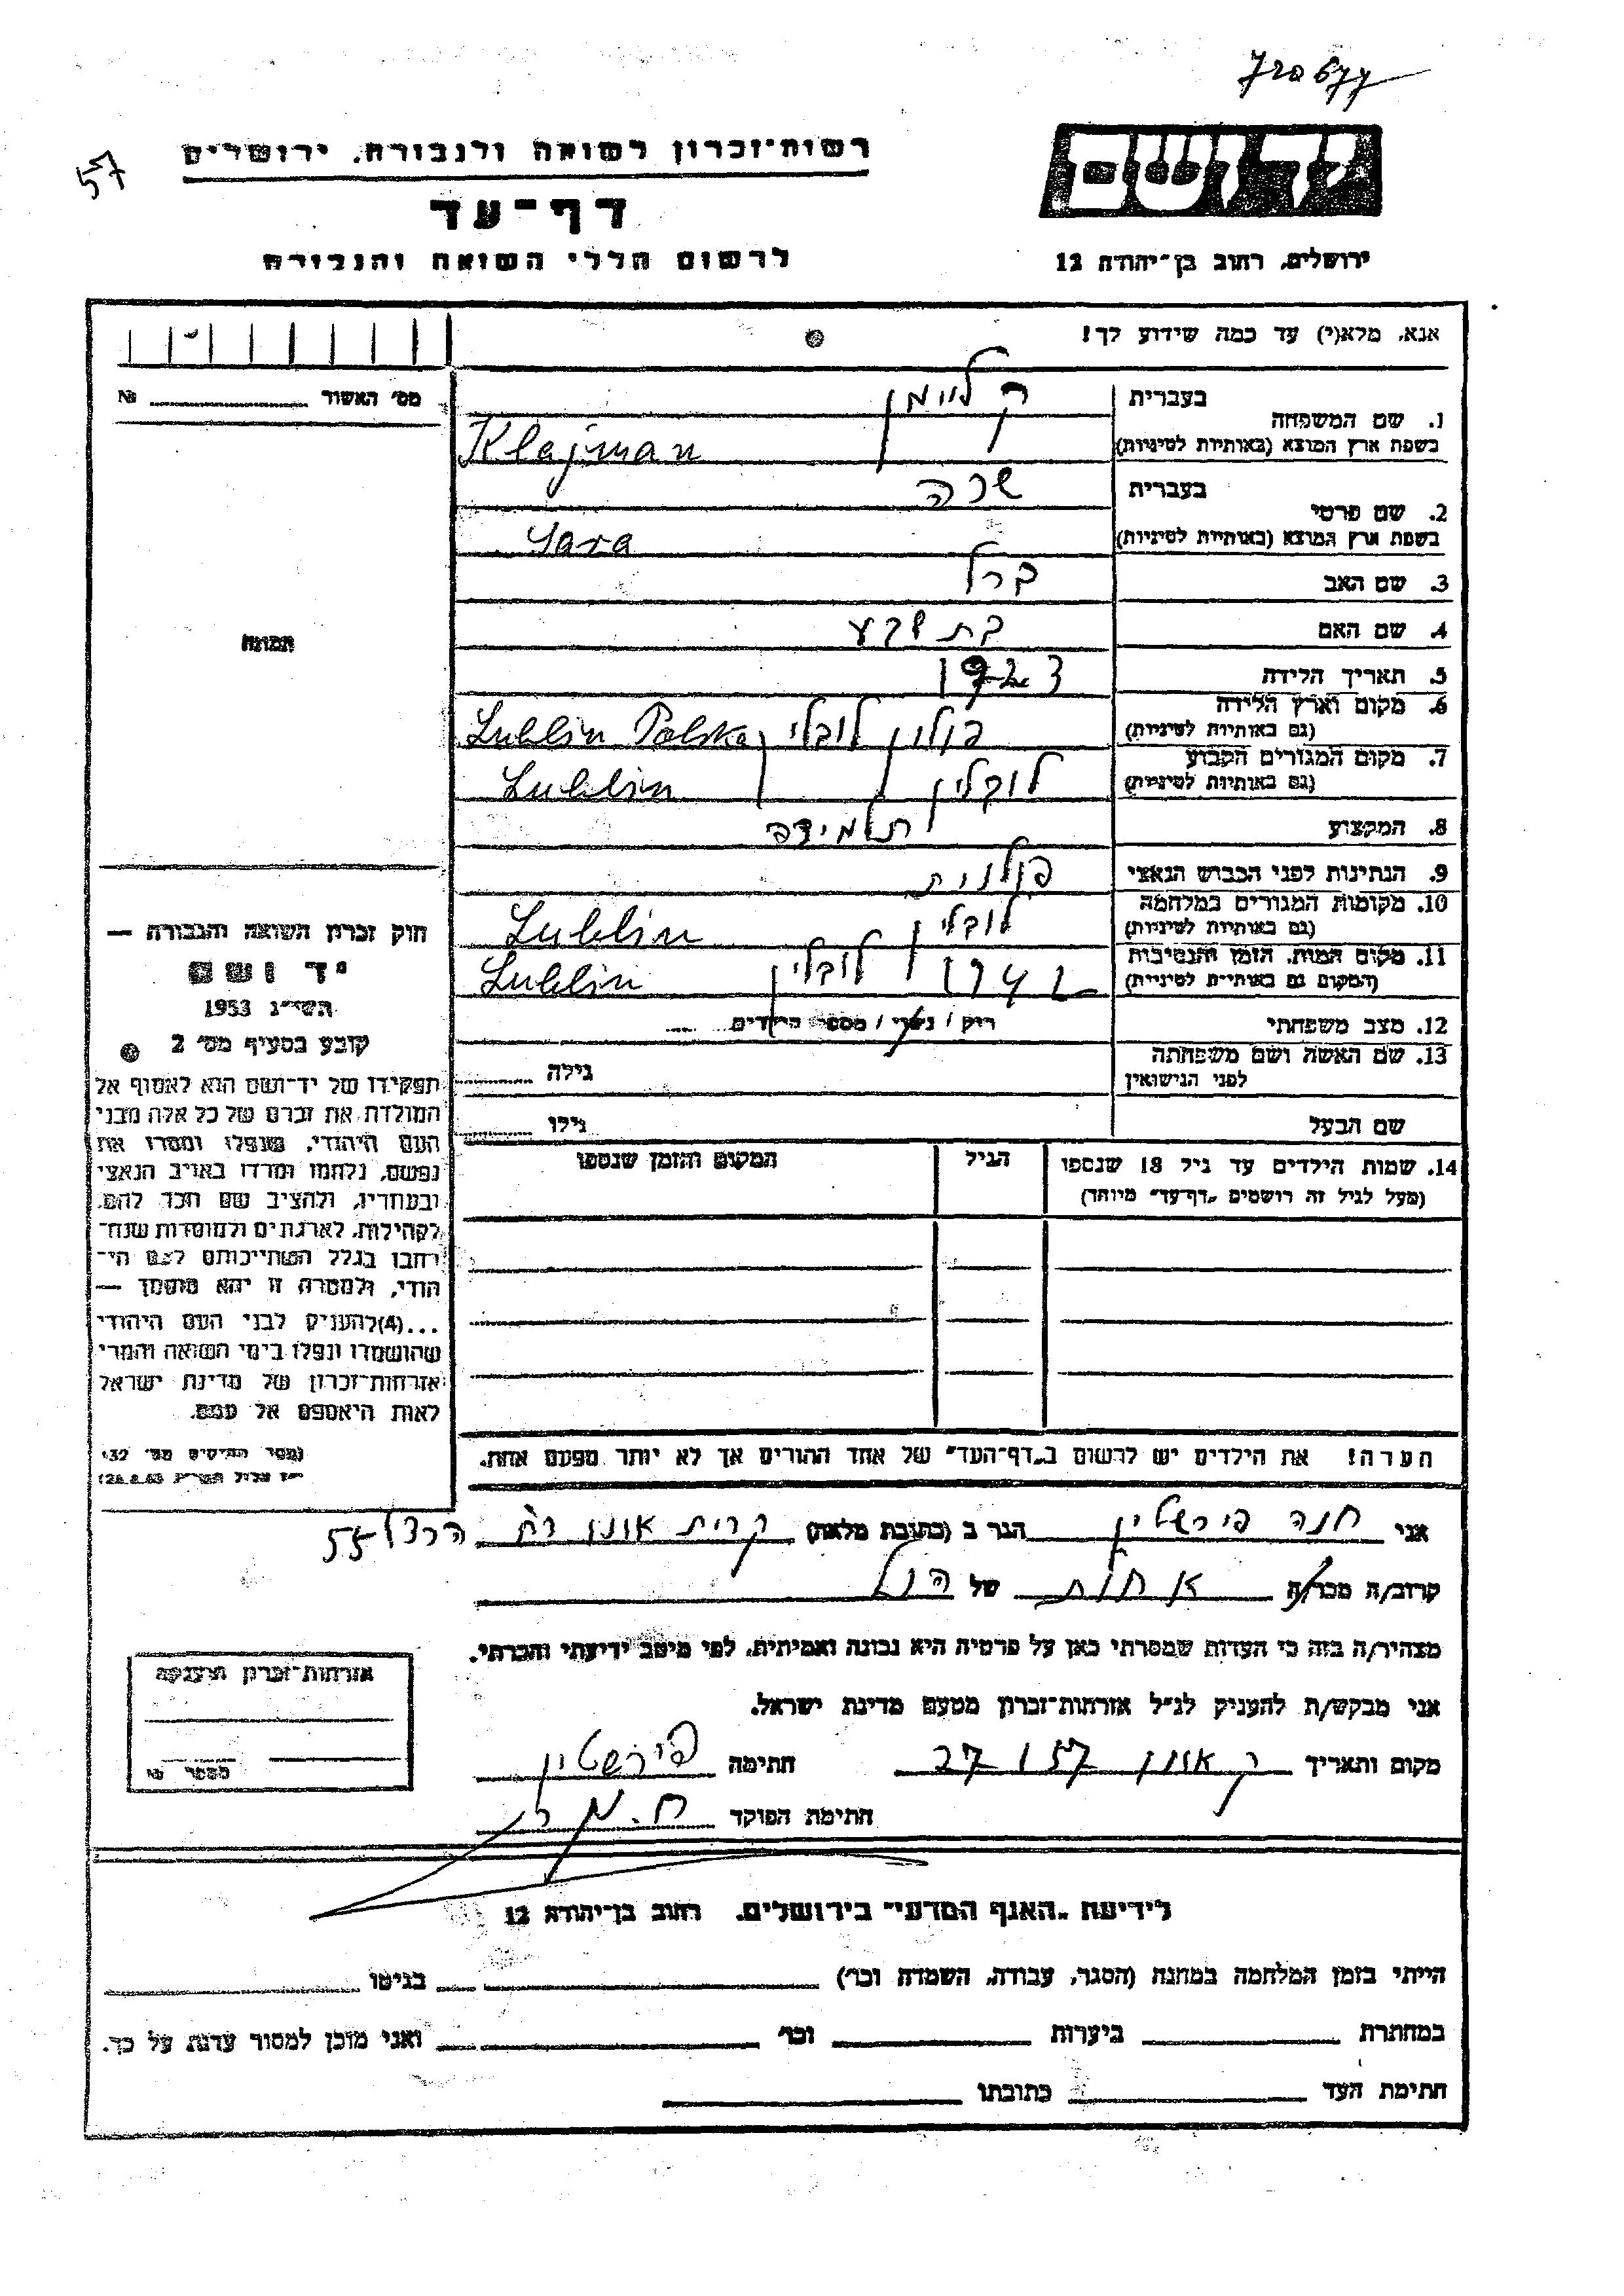 57
רשות־זכרון לשואה ולגבורה, ירושלים
דף־עד
לרשום חללי השואה והגבורה
יד ושם
ירושלים, רחוב בן־יהודה 12
אנא, מלא(י) עד כמה שידוע לך!
מס' האשור № 
1. שם המשפחה
בעברית קליימן
בשפת ארץ המוצא (באותיות לטיניות) Klajman
2. שם פרטי
בעברית שרה
בשפת ארץ המוצא (באותיות לטיניות) Sara
3. שם האב ברל
4. שם האם בת שבע
תמונה
5. תאריך הלידה 1923
6. מקום וארץ הלידה
(גם באותיות לטיניות) פולין לובלין Lublin Polska
7. מקום המגורים הקבוע
(גם באותיות לטיניות) לובלין Lublin
8. המקצוע תלמידה
9. הנתינות לפני הכבוש הנאצי פולנית
10. מקומות המגורים במלחמה
(גם באותיות לטיניות) לובלין Lublin
11. מקום המות, הזמן והנסיבות
(המקום גם באותיות לטיניות) 1942 לובלין Lublin
12. מצב משפחתי רוק / נשוי / מספר הילדים
13. שם האשה ושם משפחתה
לפני הנישואין גילה
שם הבעל גילו
14. שמות הילדים עד גיל 18 שנספו הגיל המקום והזמן שנספו
(מעל לגיל זה רושמים „דף־עד" מיוחד)
הערה! את הילדים יש לרשום ב„דף־העד" של אחד ההורים אך לא יותר מפעם אחת.
חוק זכרון השואה והגבורה —
יד ושם
תשי"ג 1953
קובע בסעיף מס' 2
תפקידו של יד־ושם הוא לאסוף אל
המולדת את זכרם של כל אלה מבני
העם היהודי, שנפלו ומסרו את
נפשם, נלחמו ומרדו באויב הנאצי
ובעוזריו, ולהציב שם וזכר להם,
לקהילות, לארגונים ולמוסדות שנח־
רבו בגלל השתייכותם לעם הי־
הודי, ולמטרה זו יהא מוסמך —
...(4)להעניק לבני העם היהודי
שהושמדו ונפלו בימי השואה והמרי
אזרחות־זכרון של מדינת ישראל
לאות היאספם אל עמם.
(ספר החוקים מס' 132
אני חנה פירשטיין הגר ב (כתובת מלאה) קרית אונו רח הרצל 55
קרוב/ה מכר/ה אחות של הנ"ל
מצהיר/ה בזה כי העדות שמסרתי כאן על פרטיה היא נכונה ואמיתית, לפי מיטב ידיעתי והכרתי.
אני מבקש/ת להעניק לנ"ל אזרחות־זכרון מטעם מדינת ישראל.
מקום ותאריך ק אונו 27 / 57 חתימה פירשטיין
חתימת הפוקד
אזרחות־זכרון הוענקה
מספר
לידיעת „האגף המדעי" בירושלים, רחוב בן־יהודה 12
הייתי בזמן המלחמה במחנה (הסגר, עבודה, השמדה וכו') בגיטו
במחתרת ביערות וכו' ואני מוכן למסור עדות על כך.
חתימת העד כתובתו